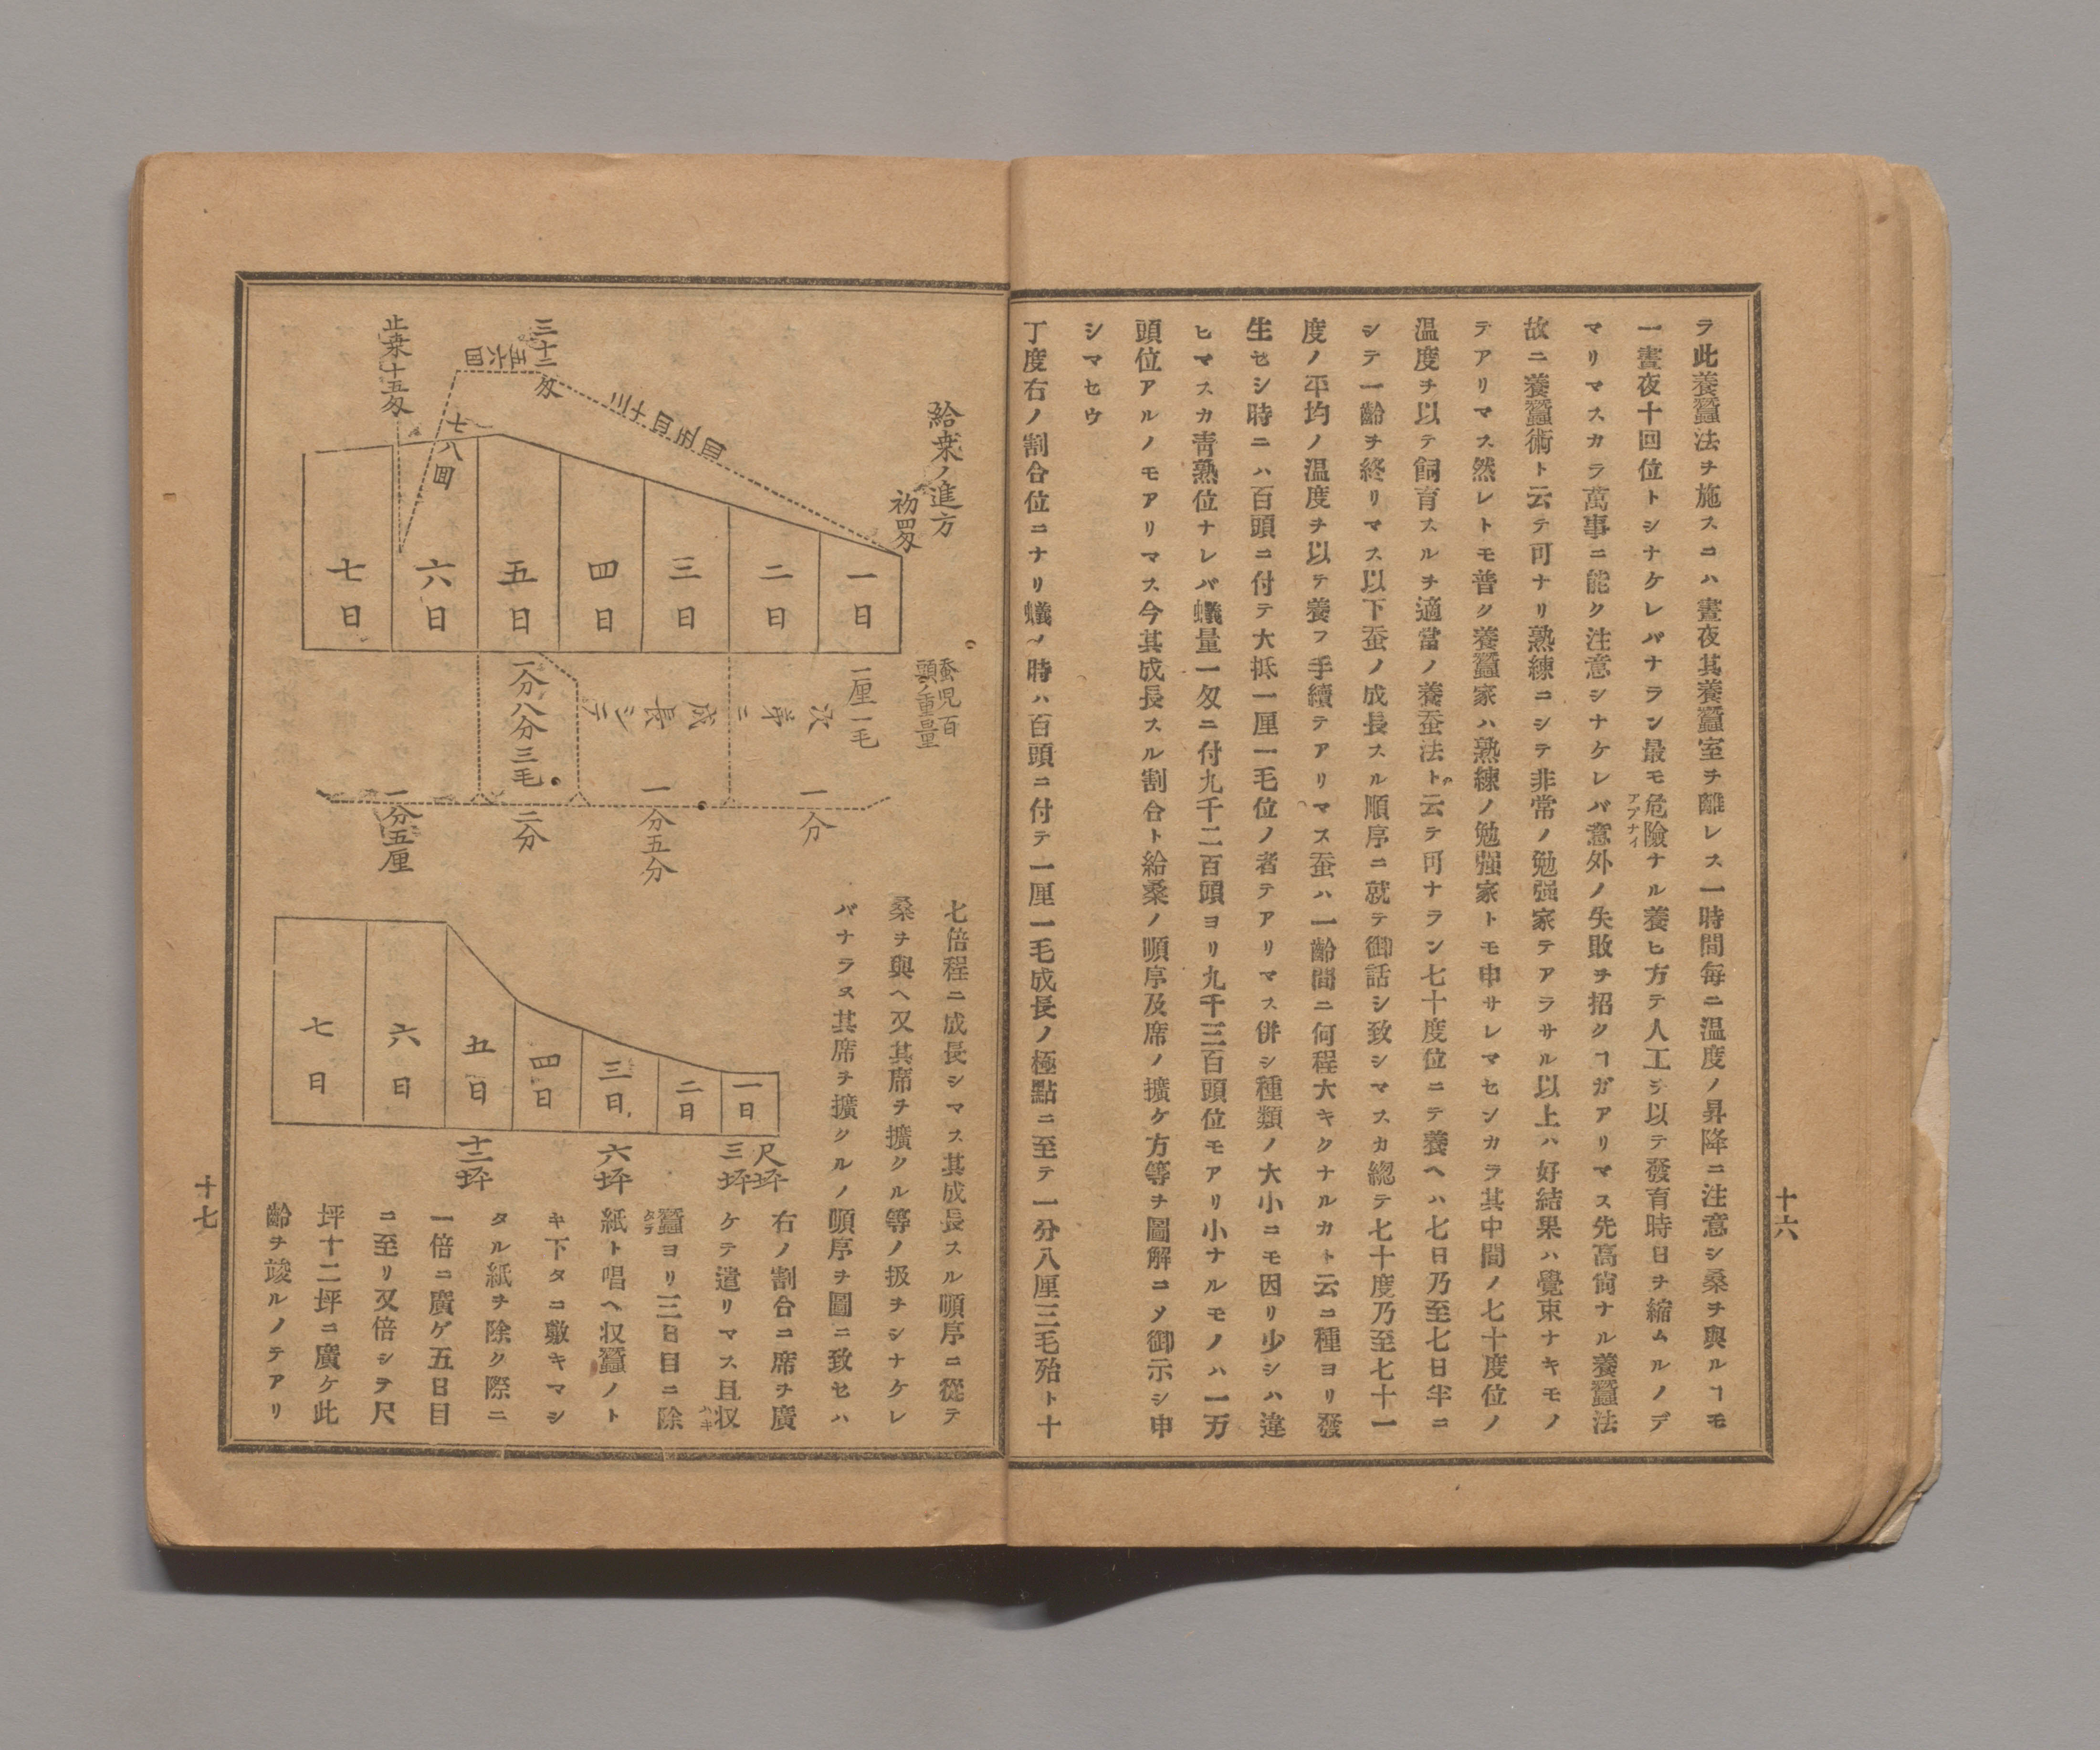 ラ此養蠶法ヲ施スニハ晝夜其養蠶室ヲ離レス一時間每ニ温度ノ昇降ニ注意シ桑ヲ與ルヿモ
一晝夜十回位トシナケレバナラン最モ危險ナル養ヒ方テ人工ヲ以テ發育時日ヲ縮ムルノデ
アブナイ
マリマスカラ萬事ニ能ク注意シナケレバ意外ノ失敗ヲ招クヿガアリマス先高尙ナル養蠶法
故ニ養蠶術ト云テ可ナリ熟練ニシテ非常ノ勉强家テアラサル以上ハ好結果ハ覺束ナキモノ
テアリマス然レトモ普ク養蠶家ハ熟練ノ勉强家トモ申サレマセンカラ其中間ノ七十度位ノ
温度ヲ以テ飼育スルヲ適當ノ養蚕法ト云テ可ナラン七十度位ニテ養ヘハ七日乃至七日半ニ
シテ一齡ヲ終リマス以下蚕ノ成長スル順序ニ就テ御話シ致シマスカ總テ七十度乃至七十一
度ノ平均ノ温度ヲ以テ養フ手續テアリマス蚕ハ一齡間ニ何程大キクナルカト云ニ種ヨリ發
生セシ時ニハ百頭ニ付テ大抵一厘一毛位ノ者テアリマス併シ種類ノ大小ニモ因リ少シハ違
ヒマスカ靑熟位ナレバ蟻量一匁ニ付九千二百頭ヨリ九千三百頭位モアリ小ナルモノハ一万
頭位アルノモアリマス今其成長スル割合ト給桑ノ順序及席ノ擴ケ方等ヲ圖解ニメ御示シ申
シマセウ
丁度右ノ割合位ニナリ蟻ノ時ハ百頭ニ付テ一厘一毛成長ノ極點ニ至テ一分八厘三毛殆ト十
十六
給桒ノ進方
初四匁
三十二匁
四六五
止桒十五匁
七八回
一日
二日
三日
四日
五日
六日
七日
蚕児百
頭ノ重量
一厘一毛
次第ニ成長シテ
一分八分三毛
一分
一分五分
二分
一分五厘
七倍程ニ成長シマス其成長スル順序ニ從テ
桑ヲ與ヘ又其席ヲ擴クル等ノ扱ヲシナケレ
バナラヌ其席ヲ擴クルノ順序ヲ圖ニ致セハ
一日
二日
三日
四日
五日
六日
七日
尺坪
三坪
六坪
十二坪
右ノ割合ニ席ヲ廣
ケテ遣リマス且収
ハキ
蠶ヨリ三日目ニ除
タテ
紙ト唱ヘ収蠶ノト
キ下タニ敷キマシ
タル紙ヲ除ク際ニ
一倍ニ廣ゲ五日目
ニ至リ又倍シヲ尺
坪十二坪ニ廣ケ此
齡ヲ竣ルノテアリ
十七